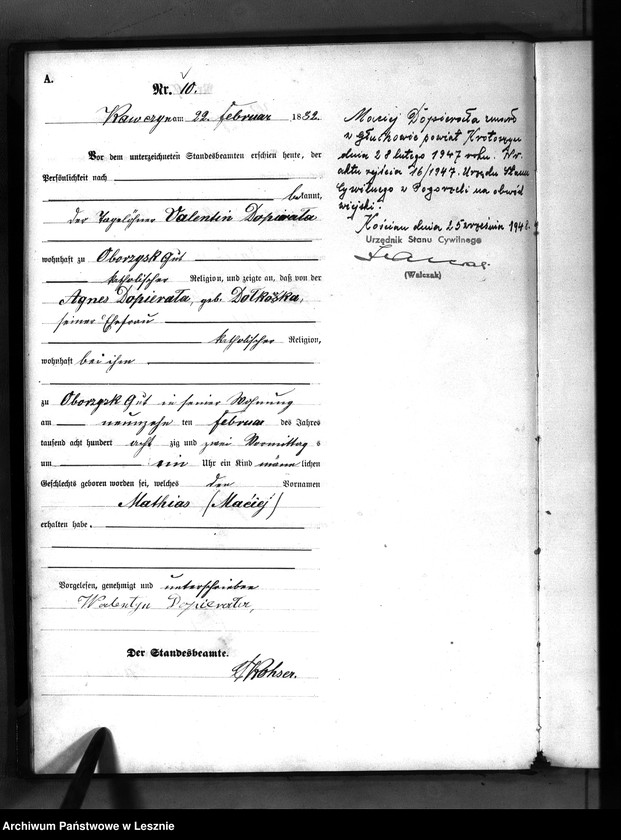 A.
Nr. 10.
Kawczyn am 22. Februar 1882.
Vor dem unterzeichneten Standesbeamten erschien heute, der
Persönlichkeit nach
bekannt,
der Tagelöhner Valentin Dopierała
wohnhaft zu Oborzysk Gut
katholischer Religion, und zeigte an, daß von der
Agnes Dopierała, geb.
seiner Ehefrau
katholischer Religion,
wohnhaft bei ihm
zu Oborzysk Gut in seiner Wohnung
am neunzehn ten Februar des Jahres
tausend acht hundert acht zig und zwei Vormittag s
um ein Uhr ein Kind männlichen
Geschlechts geboren worden sei, welches den Vornamen
Mathias (Maciej)
erhalten habe.
Vorgelesen, genehmigt und unterschrieben
Walentyn Dopierała,
Der Standesbeamte.
Maciej Dopierała zmarł
w Głuchowie powiat Krotoszyn
dnia 28 lutego 1947 roku. Nr.
aktu zejścia 16/1947. Urzędu Stanu
Cywilnego w Pogorzeli na obwód
wiejski.
Kościan dnia 25 września 1948.
Urzędnik Stanu Cywilnego
(Walczak)
Archiwum Państwowe w Lesznie